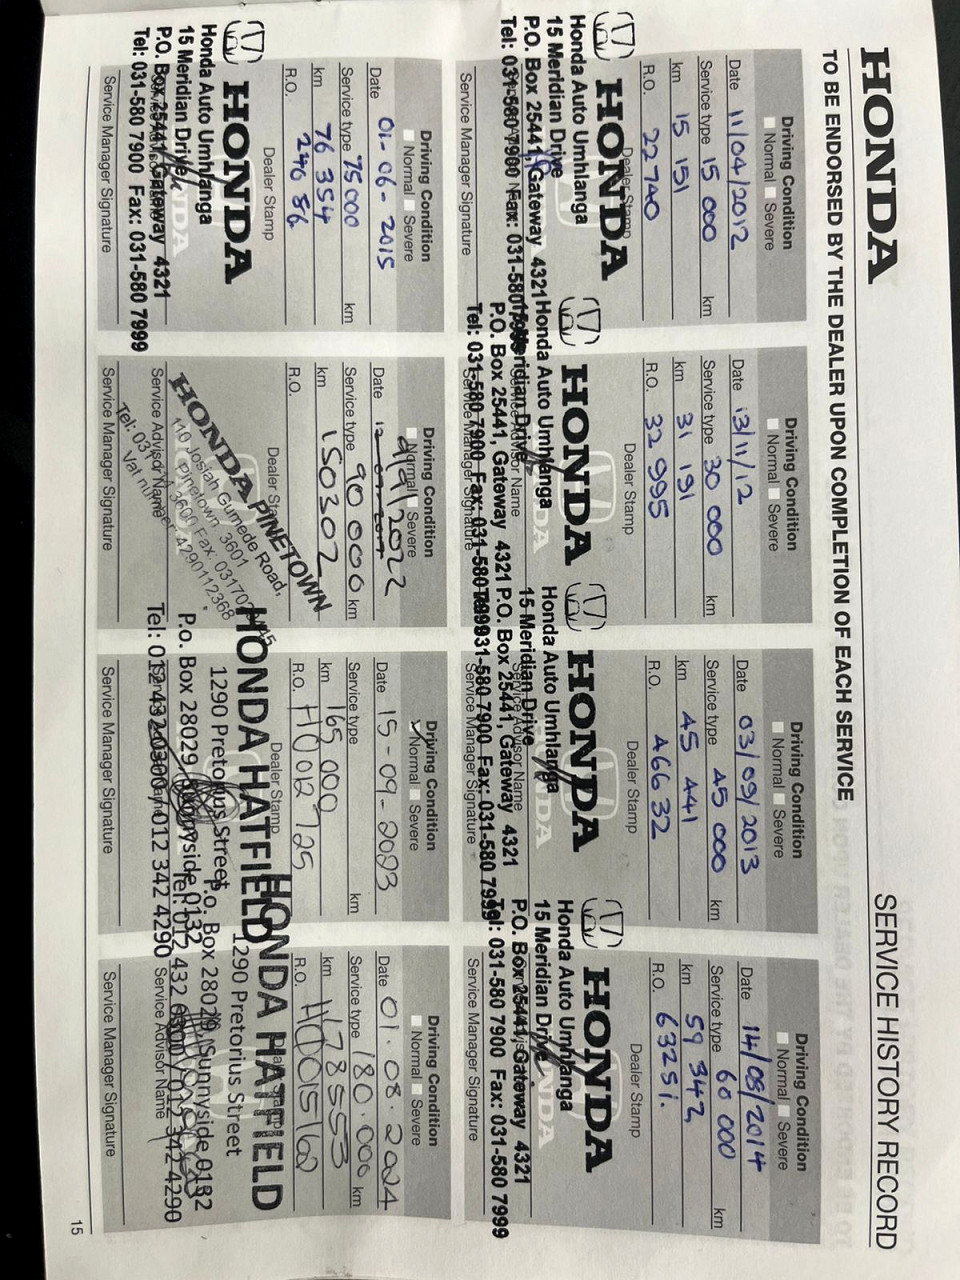 HONDA
SERVICE HISTORY RECORD
TO BE ENDORSED BY THE DEALER UPON COMPLETION OF EACH SERVICE
Driving Condition
Normal Severe
Date 11/04/2012
Service type 15 000 km
km 15 151
R.O. 22740
Dealer Stamp
HONDA
Honda Auto Umhlanga
15 Meridian Drive
P.O. Box 25441, Gateway 4321
Tel: 031-580 7900 Fax: 031-580 7999
Service Manager Signature
Driving Condition
Normal Severe
Date 13/11/12
Service type 30 000 km
km 31 191
R.O. 32 995
Dealer Stamp
HONDA
Honda Auto Umhlanga
15 Meridian Drive
P.O. Box 25441, Gateway 4321
Tel: 031-580 7900 Fax: 031-580 7999
Service Advisor Name
Service Manager Signature
Driving Condition
Normal Severe
Date 03/09/2013
Service type 45 000 km
km 45 441
R.O. 46632
Dealer Stamp
HONDA
Honda Auto Umhlanga
15 Meridian Drive
P.O. Box 25441, Gateway 4321
Tel: 031-580 7900 Fax: 031-580 7999
Service Advisor Name
Service Manager Signature
Driving Condition
Normal Severe
Date 14/08/2014
Service type 60 000 km
km 59 342
R.O. 63251.
Dealer Stamp
HONDA
Honda Auto Umhlanga
15 Meridian Drive
P.O. Box 25441, Gateway 4321
Tel: 031-580 7900 Fax: 031-580 7999
Service Manager Signature
Driving Condition
Normal Severe
Date 01-06-2015
Service type 75000 km
km 76 354
R.O.
Dealer Stamp
HONDA
Honda Auto Umhlanga
15 Meridian Drive
P.O. Box 25441, Gateway 4321
Tel: 031-580 7900 Fax: 031-580 7999
Service Manager Signature
Driving Condition
Normal Severe
Date
Service type 90 000 km
km 150302
R.O.
Dealer Stamp
HONDA PINETOWN
110 Josiah Gumede Road,
Pinetown 3601
3600 Fax: 03170
Tel: 031
Vat number 4290112368
Service Advisor Name
Service Manager Signature
Driving Condition
Normal Severe
Date 15-09-2023
Service type km
km 165 000
R.O. H0012725
Dealer Stamp
HONDA HATFIELD
1290 Pretorius Street
P.o. Box 28029 Sunnyside 0132
Tel: 012 432 0300 / 012 342 4290
Service Manager Signature
Driving Condition
Normal Severe
Date 01.08.2024
Service type 180.000 km
km 178553
R.O. H0015162
HONDA HATFIELD
1290 Pretorius Street
P.o. Box 28029 Sunnyside 0132
Tel: 012 432 0300 / 012 342 4290
Service Advisor Name
Service Manager Signature
15